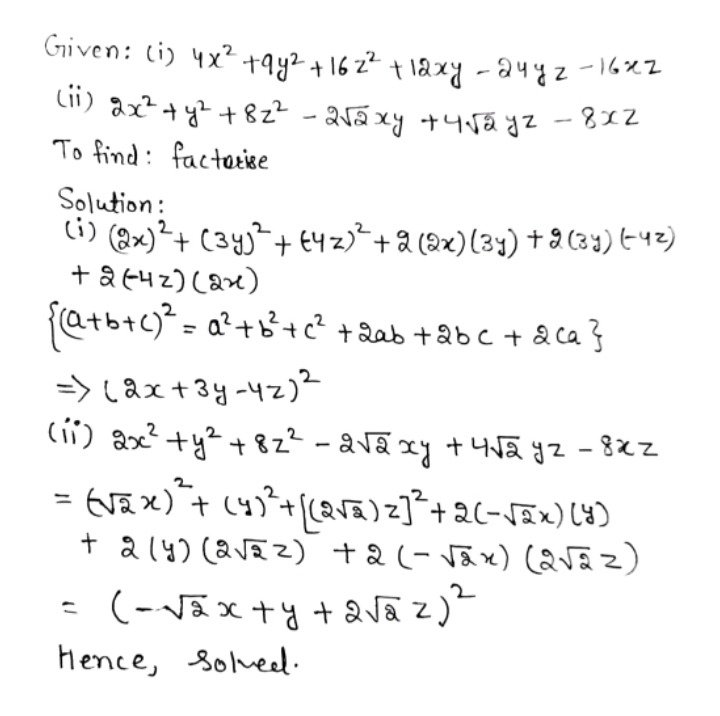 Given: (i) 4x² + 9y² + 16z² + 12xy - 24yz - 16xz
(ii) 2x² + y² + 8z² - 2√2xy + 4√2 yz - 8xz
To find: factorise
Solution:
(i) (2x)² + (3y)² + (-4z)² + 2(2x)(3y) + 2(3y)(-4z)
+ 2(-4z)(2x)
{(a+b+c)² = a² + b² + c² + 2ab + 2bc + 2ca}
=> (2x + 3y - 4z)²
(ii) 2x² + y² + 8z² - 2√2 xy + 4√2 yz - 8xz
= (-√2x)² + (y)² + [(2√2)z]² + 2(-√2x)(y)
+ 2(y)(2√2z) + 2(-√2x)(2√2z)
= (-√2x + y + 2√2 z)²
Hence, solved.